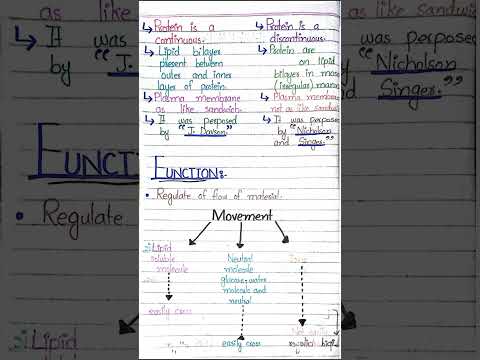 ↳ Protein is a
continuous.
↳ Lipid bilayer
present between
outer and inner
layer of protein.
↳ Plasma membrane
as like sandwich.
↳ It was perposed
by "J. Davson"
↳ Protein is a
discontinuous.
↳ Protein are
on lipid
bilayer in mosa
(irregular) mann
↳ Plasma membran
not as like sandwich
↳ It was perposed
by "Nicholson
and Singer."
FUNCTION:-
• Regulate of flow of material.
Movement
Lipid
soluble
molecule
easily cross
Neutral
molecule
glucose, water
molecule and
neutral
easily cross
as like
↳ It was
by "J.
FUNCTI
• Regulate
Lipid
as like sandwi
was perposed
Nicholson
Singer."